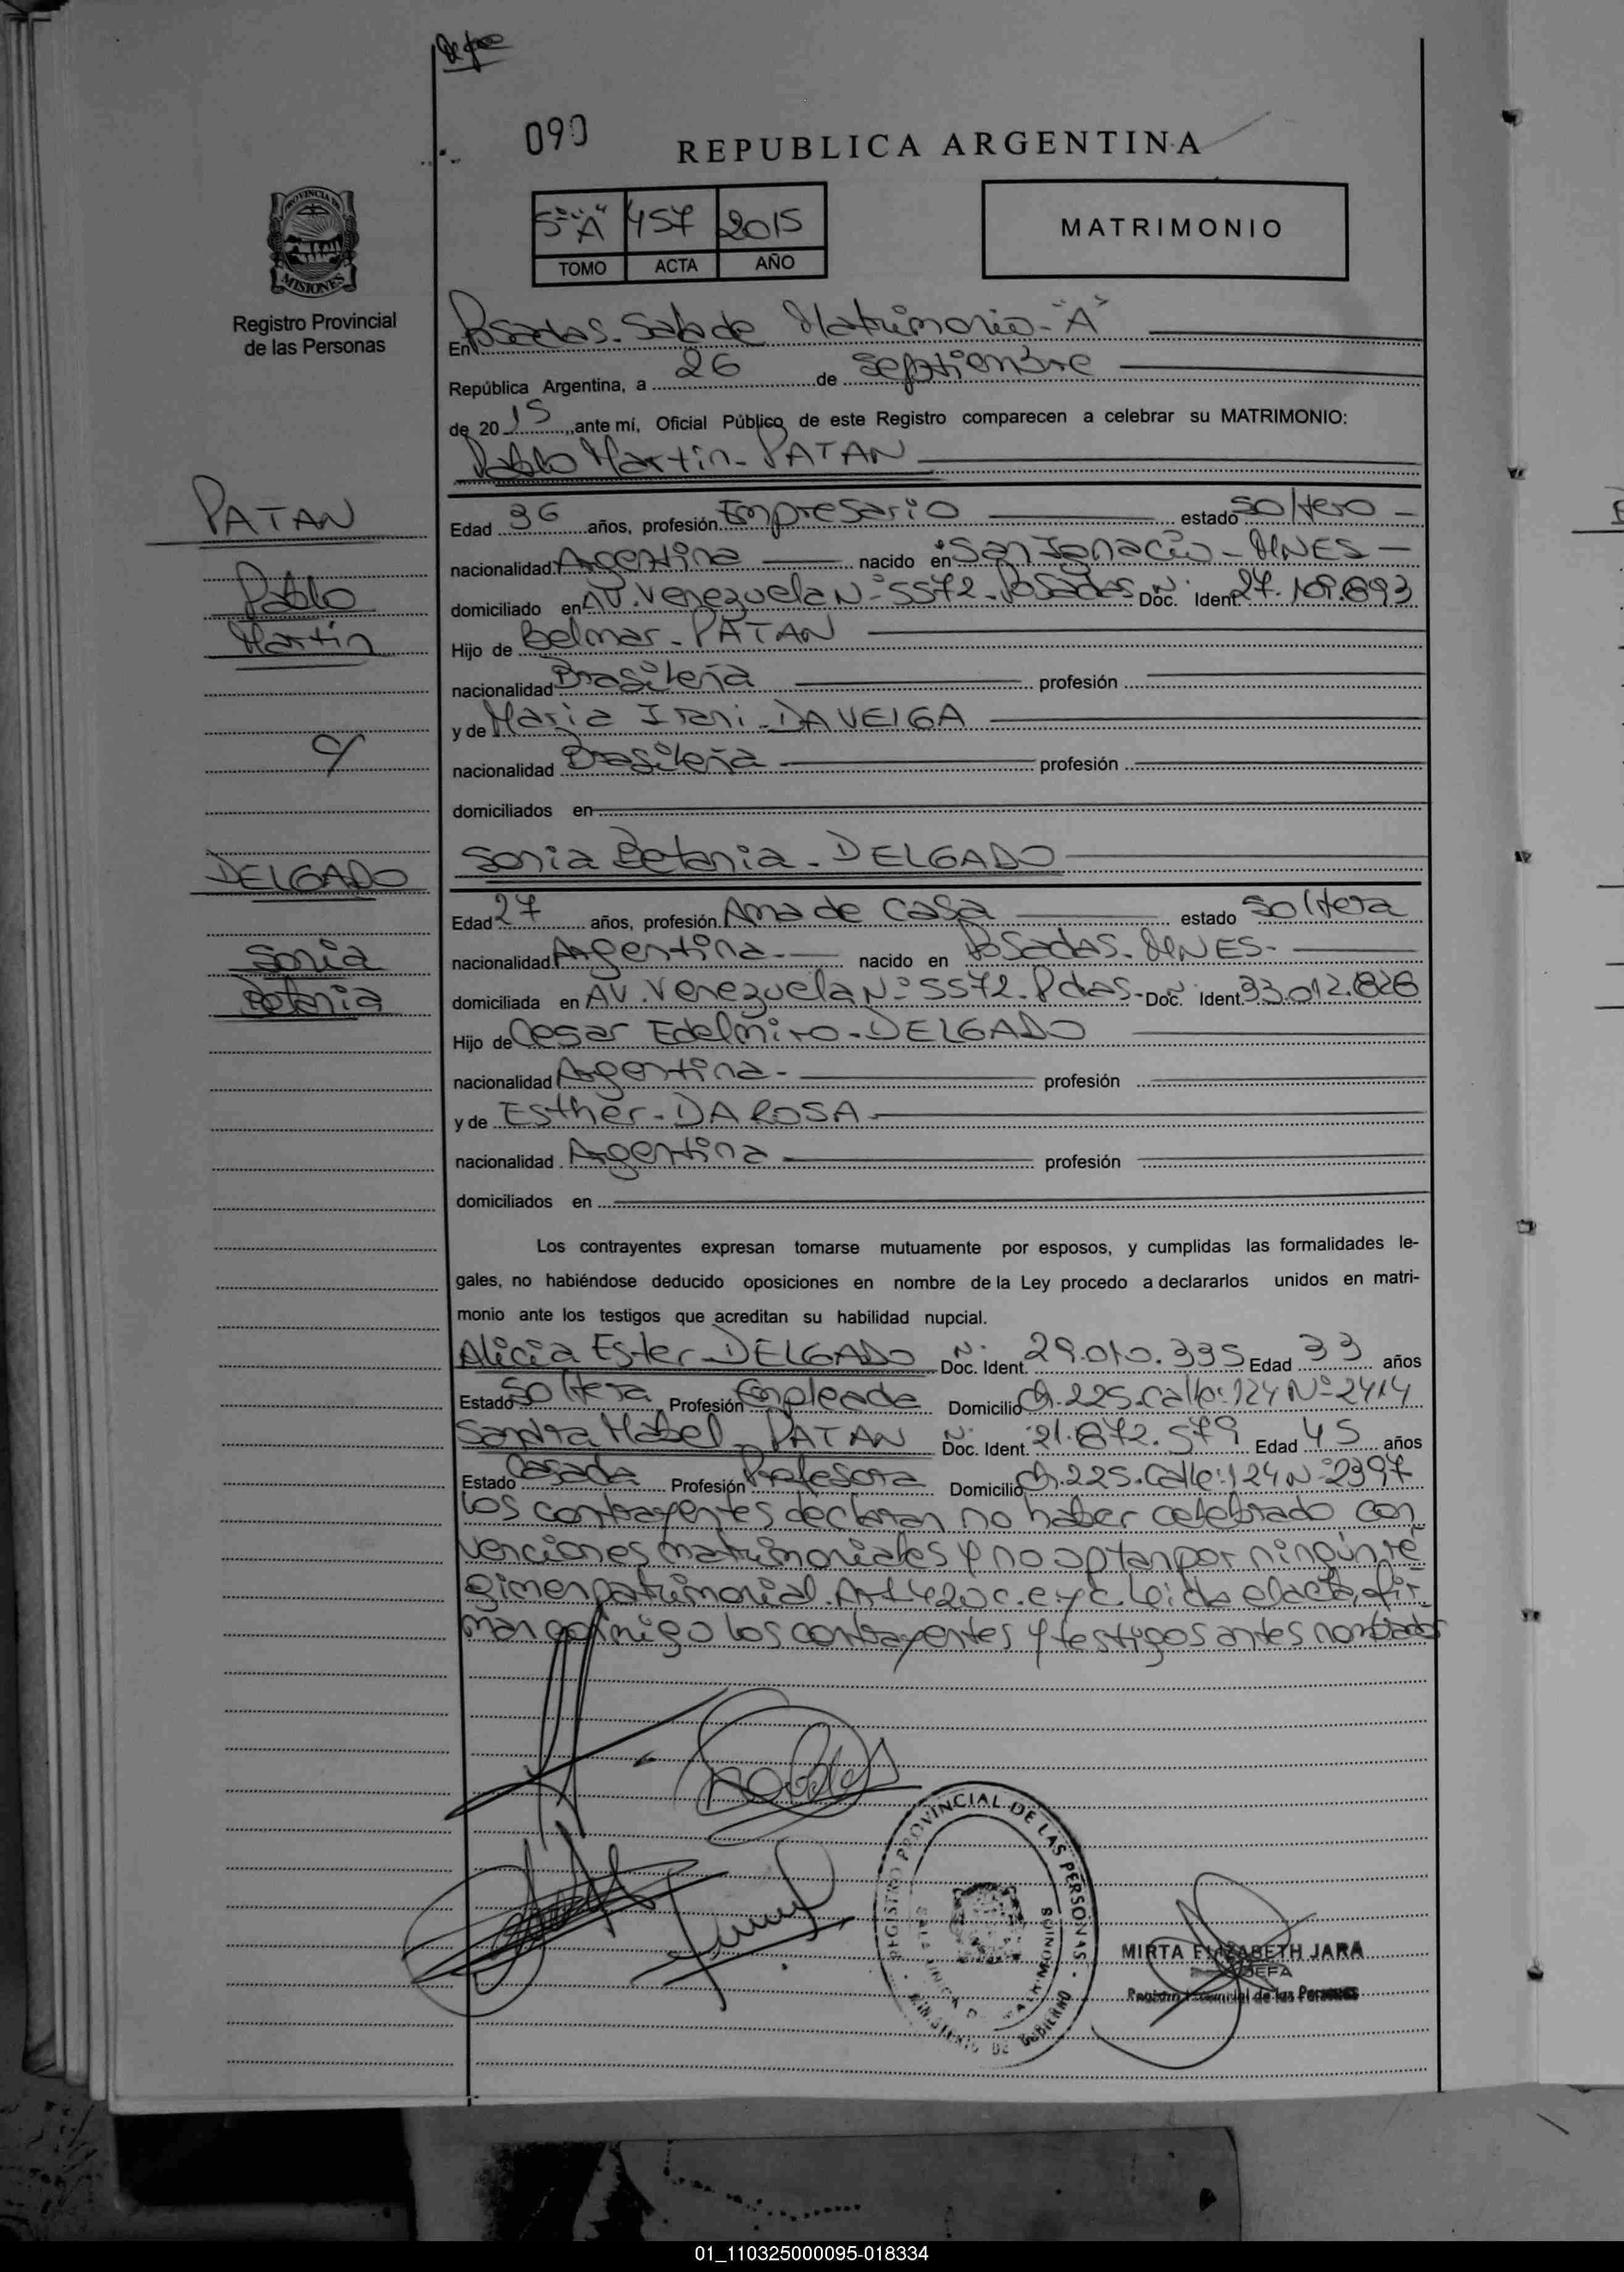 090
REPUBLICA ARGENTINA
PROVINCIA DE
MISIONES
Registro Provincial
de las Personas
5º "A" 457 2015
TOMO ACTA AÑO
MATRIMONIO
En Posadas. Sala de Matrimonio - "A"
República Argentina, a 26 de Septiembre
de 2015, ante mí, Oficial Público de este Registro comparecen a celebrar su MATRIMONIO:
Pablo Martin - PATAN
PATAN
Pablo
Martin
c/
DELGADO
Sonia
Betania
Edad 36 años, profesión Empresario estado soltero -
nacionalidad Argentina nacido en San Ignacio - MNES -
domiciliado en AV. Venezuela Nº 5572 - Posadas Doc. Ident. Nº 27.109.693
Hijo de Belmar - PATAN
nacionalidad Brasileña profesión
y de Maria Irani - DA VEIGA
nacionalidad Brasileña profesión
domiciliados en
Sonia Betania - DELGADO
Edad 27 años, profesión Ama de Casa estado soltera
nacionalidad Argentina - nacido en Posadas - MNES -
domiciliada en AV. Venezuela Nº 5572 - Pdas - Doc. Ident. Nº 33.012.828
Hijo de Cesar Edelmiro - DELGADO
nacionalidad Argentina - profesión
y de Esther - DA ROSA -
nacionalidad Argentina profesión
domiciliados en
Los contrayentes expresan tomarse mutuamente por esposos, y cumplidas las formalidades le-
gales, no habiéndose deducido oposiciones en nombre de la Ley procedo a declararlos unidos en matri-
monio ante los testigos que acreditan su habilidad nupcial.
Alicia Ester - DELGADO Doc. Ident. Nº 29.010.335 Edad 33 años
Estado Soltera Profesión Empleada Domicilio Ch. 225 - Calle: 124 Nº 2414
Sandra Mabel - PATAN Doc. Ident. Nº 21.872.579 Edad 45 años
Estado Casada Profesión Profesora Domicilio Ch. 225 - Calle: 124 Nº 2397
los contrayentes declaran no haber celebrado con
venciones matrimoniales y no optan por ningún ré
gimen patrimonial. Art 420 c. c. y c. Leída el acta, fir-
man conmigo los contrayentes y testigos antes nombrados
REGISTRO PROVINCIAL DE LAS PERSONAS
MATRIMONIOS
MINISTERIO DE GOBIERNO
MIRTA ELIZABETH JARA
JEFA
Registro Provincial de las Personas
01_110325000095-018334